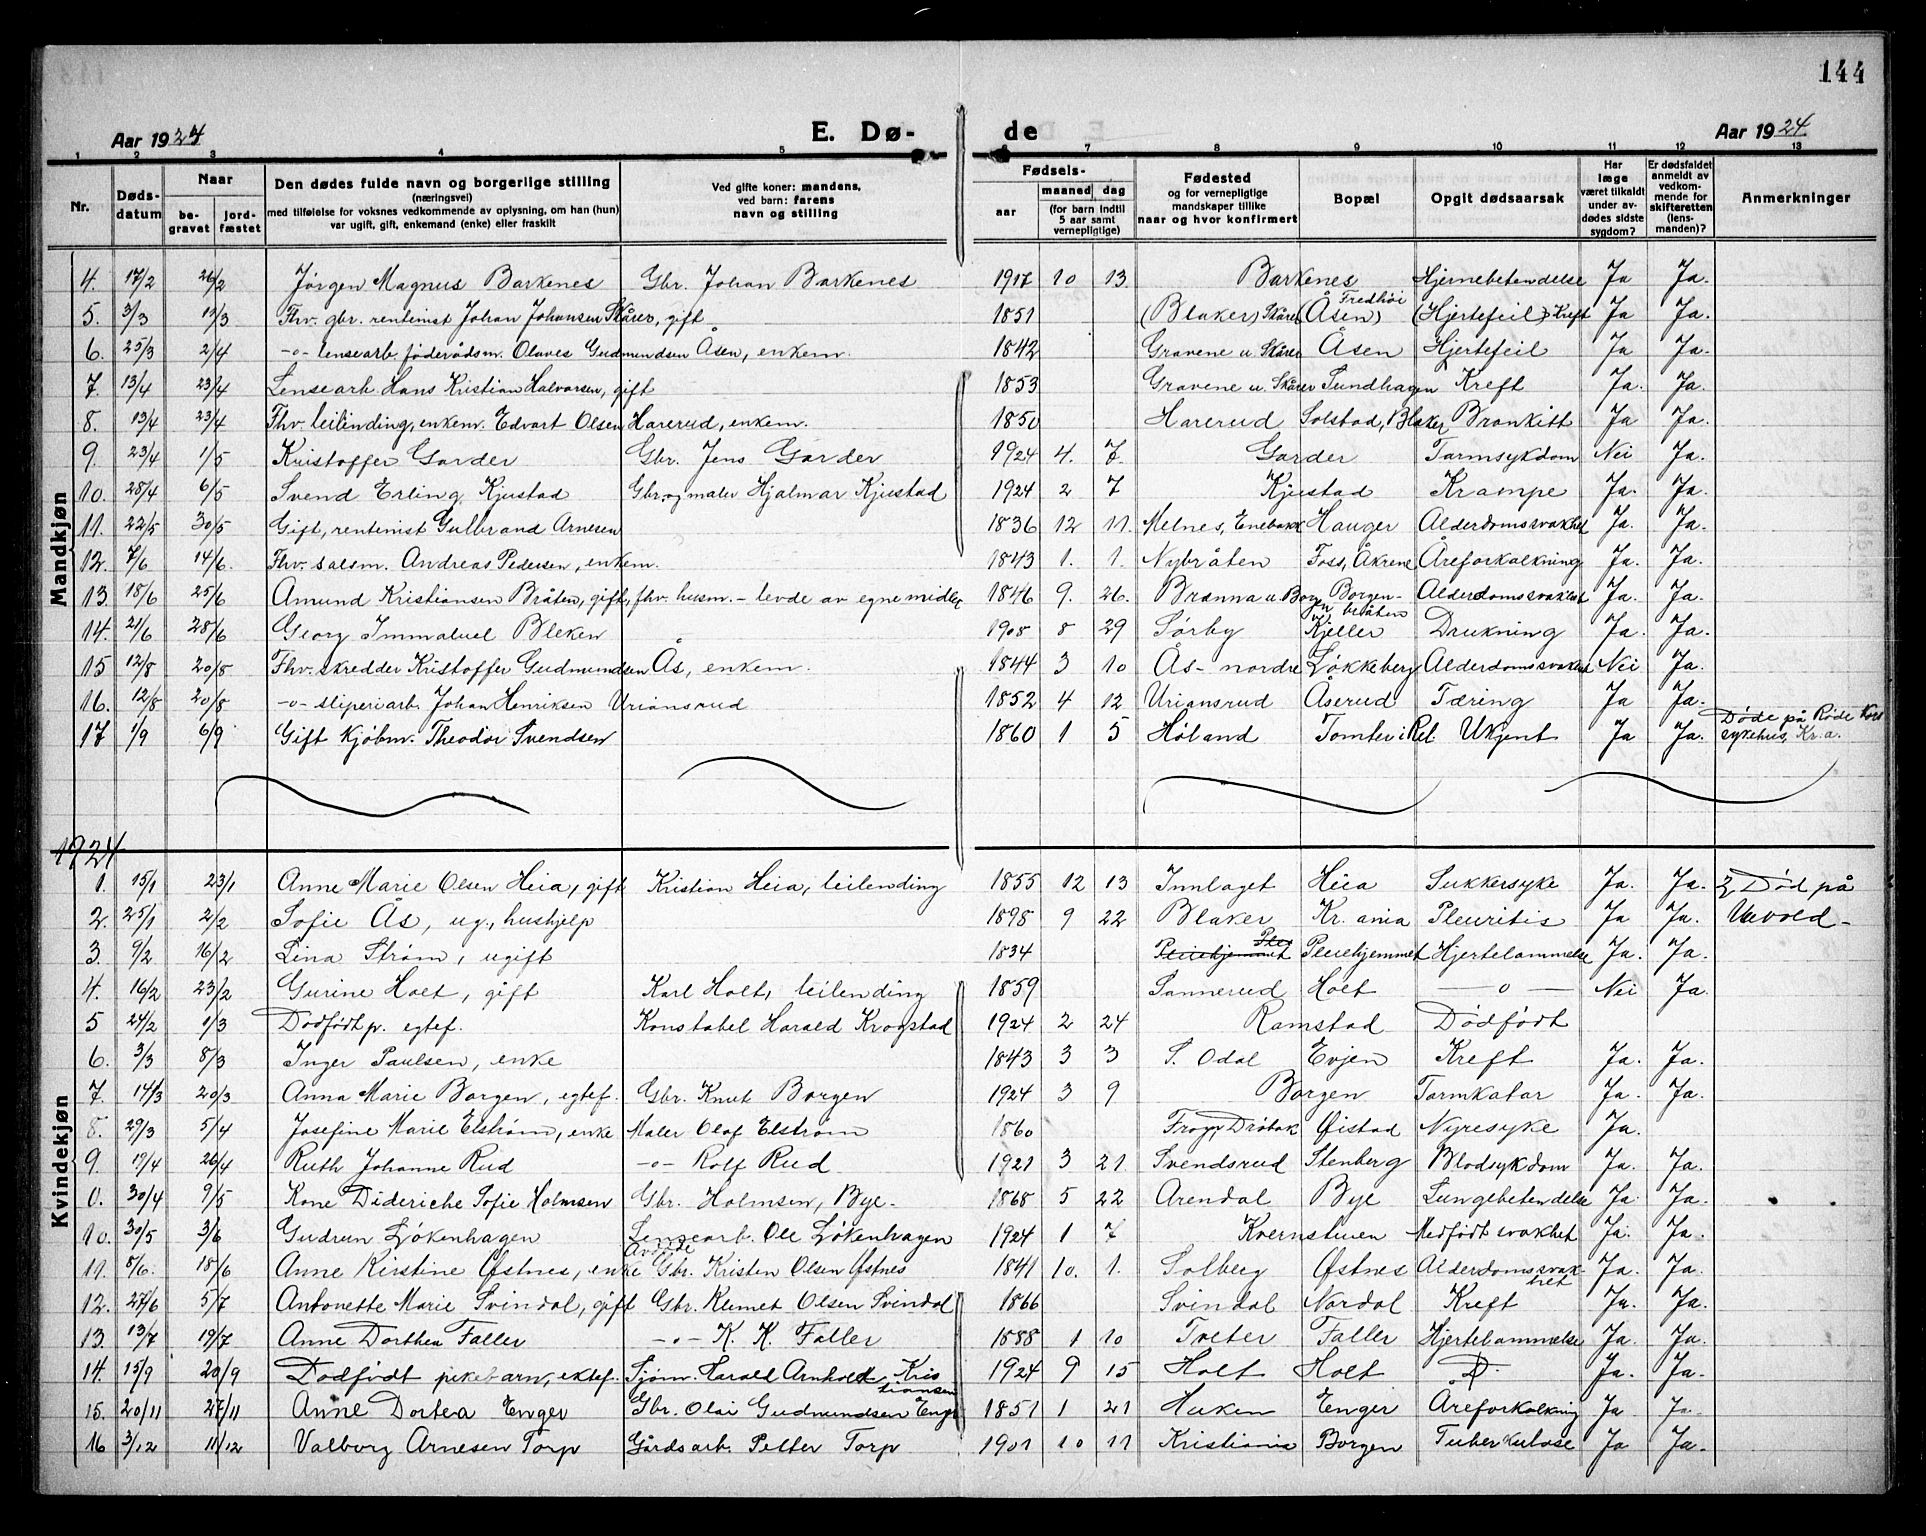 144
Aar 1924 E. Dø- de Aar 1924
1 2 3 4 5 6 7 8 9 10 11 12 13
Nr. Døds-datum Naar be-gravet jord-fæstet Den dødes fulde navn og borgerlige stilling (næringsvei) med tilføielse for voksnes vedkommende av oplysning, om han (hun) var ugift, gift, enkemand (enke) eller fraskilt Ved gifte koner: mandens, ved barn: farens navn og stilling Fødsels- aar maaned dag (for barn indtil 5 aar samt vernepligtige) Fødested og for vernepligtige mandskaper tillike naar og hvor konfirmert Bopæl Opgit dødsaarsak Har læge været tilkaldt under av-dødes sidste sygdom? Er dødsfaldet anmeldt av vedkom-mende for skifteretten (lens-manden)? Anmerkninger
Mandkjøn
4. 17/2 26/2 Jørgen Magnus Barkenes Gbr. Johan Barkenes 1917 10 13 Barkenes Hjernebetendelse Ja Ja.
5. 3/3 13/3 Fhv. gbr. rentenist Johan Johansen Skårer, gift 1851 (Blaker) Skårer (Åsen) Fredhöi (Hjertefeil) Kreft Ja Ja.
6. 25/3 2/4 -o- lensearb. föderådsm. Olaves Gudmundsen Åsen, enkem. 1842 Gravene u. Skårer Åsen Hjertefeil Ja Ja.
7. 13/4 23/4 Lensearb. Hans Kristian Halvorsen, gift 1853 Gravene u. Skårer Sundhagen Kreft Ja. Ja.
8. 13/4 23/4 Fhv. leilending, enkem. Edvart Olsen Harerud, enkem. 1850 Harerud Solstad, Blaker Bronkitt Ja Ja.
9. 23/4 1/5 Kristoffer Garder Gbr. Jens Garder 1924 4. 7. Garder Tarmsykdom Nei Ja.
10. 28/4 6/5 Svend Erling Kjustad Gbr. og maler Hjalmar Kjustad 1924 2 7 Kjustad Krampe Ja. Ja.
11. 22/5 30/5 Gift, rentenist Gulbrand Arnesen 1836 12 11. Melnes, Enebakk Hauger Alderdomssvakhet Ja. Ja.
12. 7/6 14/6. Fhv. salsm. Andreas Pedersen, enkem. 1843 1. 1. Nybråten Foss, Åkrene Åreforkalkning Ja. Ja.
13. 18/6 25/6 Amund Kristiansen Bråten, gift, fhv. husm. - levde av egne midler 1846 9. 26. Brænna u. Borgen Borgen-bråten Alderdomssvakhet Ja. Ja.
14. 21/6 28/6 Georg Immaluel Bleken 1908 8 29 Sørby Kjeller Drukning Ja. Ja.
15 12/8 20/8 Fhv. skredder Kristoffer Gudmundsen Ås, enkem. 1844 3 10 Ås- nordre Løkkeberg Alderdomssvakhet Nei Ja.
16. 12/8 20/8 -o- sliperiarb. Johan Henriksen Uriansrud 1852 4 12 Uriansrud Åserud Tæring Ja Ja.
17 1/9 6/9 Gift Kjøbm. Theodor Svendsen 1860 1 5 Høland Tomter i Rel. Ukjent Ja Ja. Døde på Røde Kors sykehus, Kr.a.
1924
Kvindekjøn
1. 15/1 23/1 Anne Marie Olsen Heia, gift Kristian Heia, leilending 1855 12 13 Innlaget Heia Sukkersyke Ja. Ja. Död på
2. 25/1 2/2 Sofie Ås, ug., hushjelp 1898 9 22 Blaker Kr. ania Pleuritis Ja Ja. Ullevold -
3. 9/2 16/2 Lina Strøm, ugift 1834 Pleiehjemmet Pleiehjemmet Hjertelammelse Ja. Ja.
4. 16/2 23/2 Gurine Holt, gift Karl Holt, leilending 1859 Sannerud Holt -o- Nei Ja.
5 24/2 1/3 Dødfødt p. egtef. Konstabel Harald Krogstad 1924 2 24 Ramstad Dödfödt
6. 3/3 8/3 Inger Paulsen, enke 1843 3 3 S. Odal Evjen Kreft Ja. Ja.
7. 14/3 20/3 Anna Marie Borgen, egtef. Gbr. Knut Borgen 1924 3 9 Borgen Tarmkatar Ja. Ja.
8. 29/3 5/4 Josefine Marie Elstrøm, enke Maler Olaf Elstrøm 1860 Frogn, Dröbak Øistad Nyresyke Ja.
9. 19/4 26/4 Ruth Johanne Rud -o- Rolf Rud 1921 3 21. Svendsrud Stenberg Blodsykdom Ja. Ja.
0. 30/4 9/5 Kone Dideriche Sofie Holmsen Gbr. Holmsen, Bye- 1868 5 22 Arendal Bye Lungebetendelse Ja. Ja.
10. 30/5 3/6 Gudrun Løkenhagen Lensearb. Ole Løkenhagen 1924 1 7 Kvernstuen Medfödt svakhet Ja. Ja.
11. 8/6. 18/6 Anne Kirstine Østnes, enke Avdøde Gbr. Kristen Olsen Østnes 1841 10. 1. Solberg Østnes Alderdomssvak-het Ja. Ja.
12. 27/6 5/7 Antonette Marie Svindal, gift Gbr. Klemet Olsen Svindal 1866 Svindal Nordal Kreft Ja. Ja.
13. 13/7 19/7 Anne Dorthea Faller -o- K. K. Faller 1888 1 10 Tveter Faller Hjertelammelse Ja. Ja.
14. 15/9 20/9 Dødfødt pikebarn, ektef. Sjøm. Harald Arnholdt Kristiansen 1924 9 15 Holt Holt D. Ja. Ja.
15. 20/11 27/11 Anne Dortea Enger Gbr. Olai Gudmundsen Enger 1851 1 21 Huken Enger Areforkalkning Ja Ja.
16 3/12 11/12 Valborg Arnesen Torp Gårdsarb. Petter Torp 1901 10 11 Kristiania Borgen Tuberkulose Ja Ja.